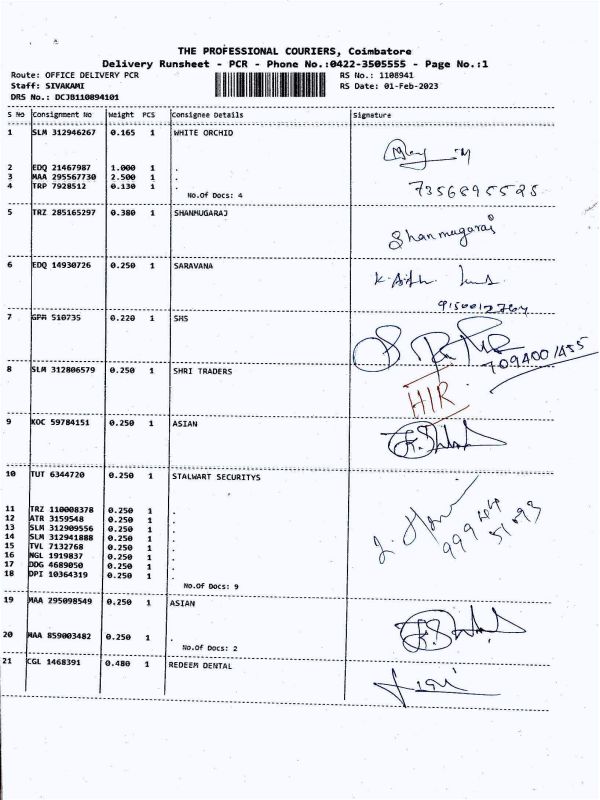 THE PROFESSIONAL COURIERS, Coimbatore
Delivery Runsheet - PCR - Phone No.:0422-3505555 - Page No.:1
Route: OFFICE DELIVERY PCR RS No.: 1108941
Staff: SIVAKAMI RS Date: 01-Feb-2023
DRS No.: DCJB110894101
S No Consignment No Weight PCS Consignee Details Signature
1 SLM 312946267 0.165 1 WHITE ORCHID
2 EDQ 21467987 1.000 1 .
3 MAA 295567730 2.500 1 .
4 TRP 7928512 0.130 1 .
No.Of Docs: 4 7356895525
5 TRZ 285165297 0.380 1 SHANMUGARAJ
Shanmugaraj
6 EDQ 14930726 0.250 1 SARAVANA
7 GPM 510735 0.220 1 SMS
8 SLM 312806579 0.250 1 SHRI TRADERS
7094001455
HIR
9 KOC 59784151 0.250 1 ASIAN
10 TUT 6344720 0.250 1 STALWART SECURITYS
11 TRZ 110008378 0.250 1 .
12 ATR 3159548 0.250 1 .
13 SLM 312909556 0.250 1 .
14 SLM 312941888 0.250 1 .
15 TVL 7132768 0.250 1 .
16 NGL 1919837 0.250 1 .
17 DDG 4689050 0.250 1 .
18 DPI 10364319 0.250 1 .
No.Of Docs: 9
19 MAA 295098549 0.250 1 ASIAN
20 MAA 859003482 0.250 1 .
No.Of Docs: 2
21 CGL 1468391 0.480 1 REDEEM DENTAL